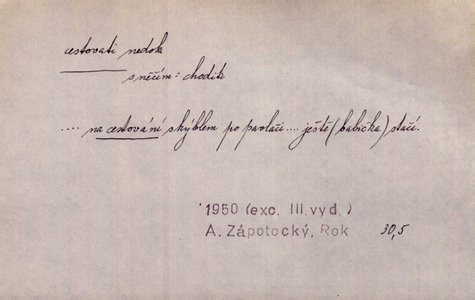 cestovati nedok
s něčím: chodit
.... na cestování s kýblem po pavlači .... ještě (babička) stačí.
1950 (exc. III. vyd.)
A. Zápotocký, Rok 30,5